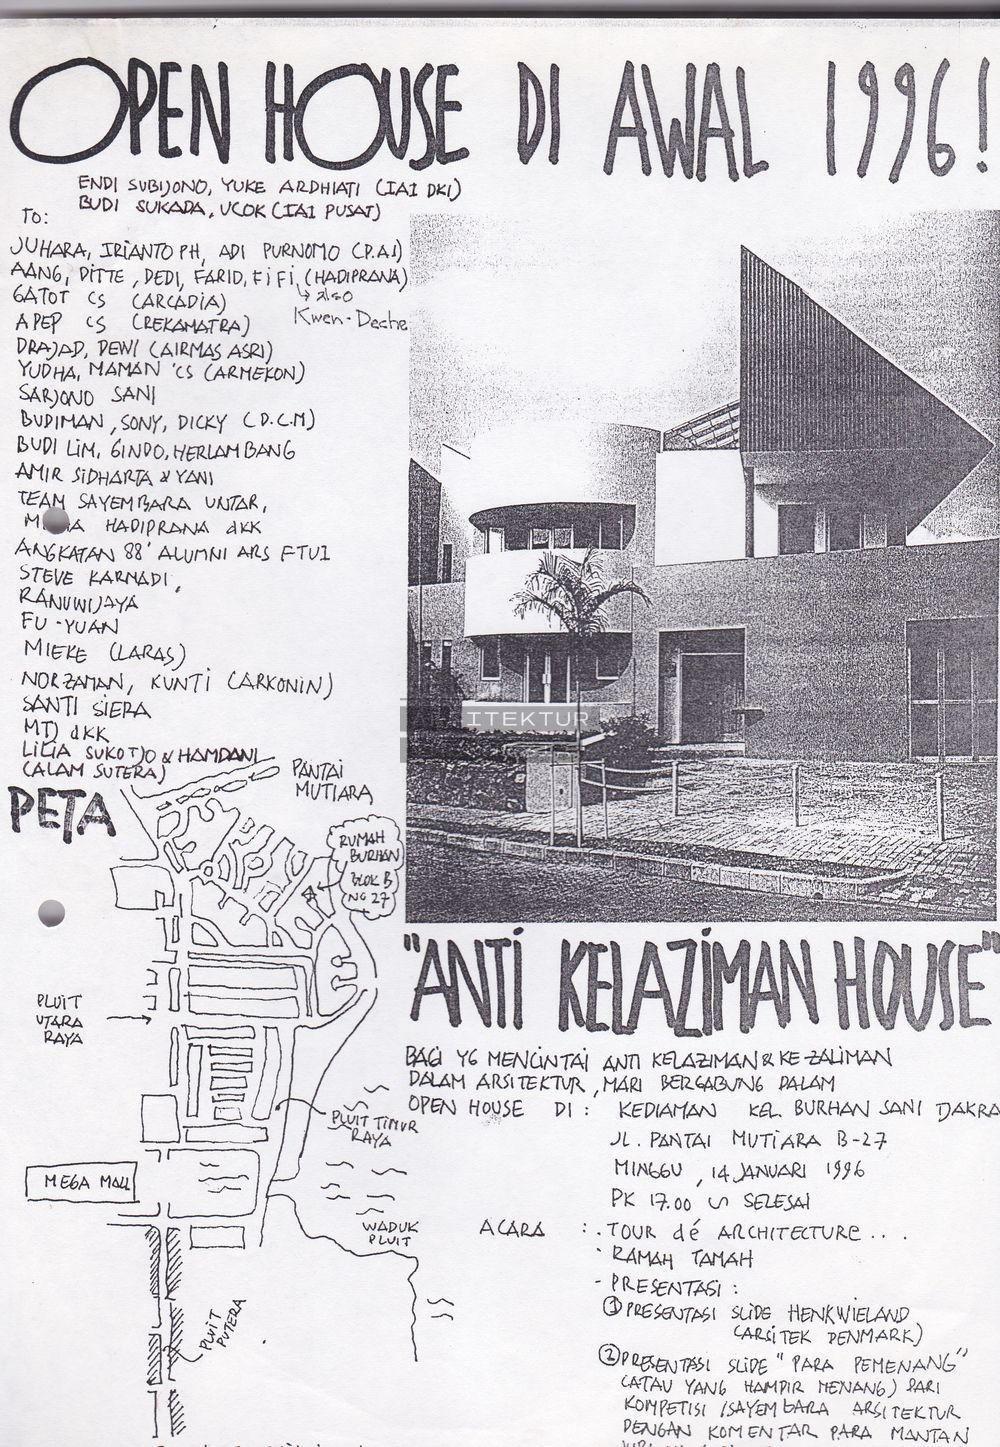 OPEN HOUSE DI AWAL 1996!
ENDI SUBIJONO, YUKE ARDHIATI (IAI DKI)
BUDI SUKADA, UCOK (IAI PUSAT)
TO:
JUHARA, IRIANTO PH, ADI PURNOMO (P.A.I)
AANG, DITTE, DEDI, FARID, FiFi, (HADIPRANA)
↳ also
Kwen-Deche
GATOT CS (ARCADIA)
APEP CS (REKAMATRA)
DRAJAD, DEWI (AIRMAS ASRI)
YUDHA, MAMAN 'CS (ARMEKON)
SARJONO SANI
BUDIMAN, SONY, DICKY (D.C.M)
BUDI LIM, GINDO, HERLAMBANG
AMIR SIDHARTA & YANI
TEAM SAYEMBARA UNTAR,
HADIPRANA dKK
ANGKATAN 88' ALUMNI ARS FTUI
STEVE KARNADI,
RANUWIJAYA
FU-YUAN
MIEKE (LARAS)
NORZAMAN, KUNTI (ARKONIN)
SANTI SIERA
MTJ dKK
LILIA SUKOTJO & HAMDANI
(ALAM SUTERA)
PETA
PANTAI
MUTIARA
RUMAH
BURHAN
BLOK B
NO 27
PLUIT
UTARA
RAYA
PLUIT TIMUR
RAYA
MEGA MALL
WADUK
PLUIT
PLUIT
PUTERA
ITEKTUR
"ANTI KELAZIMAN HOUSE"
BAGI YG MENCINTAI ANTI KELAZIMAN & KE-ZALIMAN
DALAM ARSITEKTUR, MARI BERGABUNG DALAM
OPEN HOUSE DI: KEDIAMAN KEL. BURHAN SANI TJAKRA
JL. PANTAI MUTIARA B-27
MINGGU, 14 JANUARI 1996
PK 17.00 ∽ SELESAI
ACARA :. TOUR dé ARCHITECTURE...
· RAMAH TAMAH
- PRESENTASI:
① PRESENTASI SLIDE HENKWIELAND
(ARSITEK DENMARK)
② PRESENTASI SLIDE "PARA PEMENANG"
(ATAU YANG HAMPIR MENANG) DARI
KOMPETISI/SAYEMBARA ARSITEKTUR
DENGAN KOMENTAR PARA MANTAN